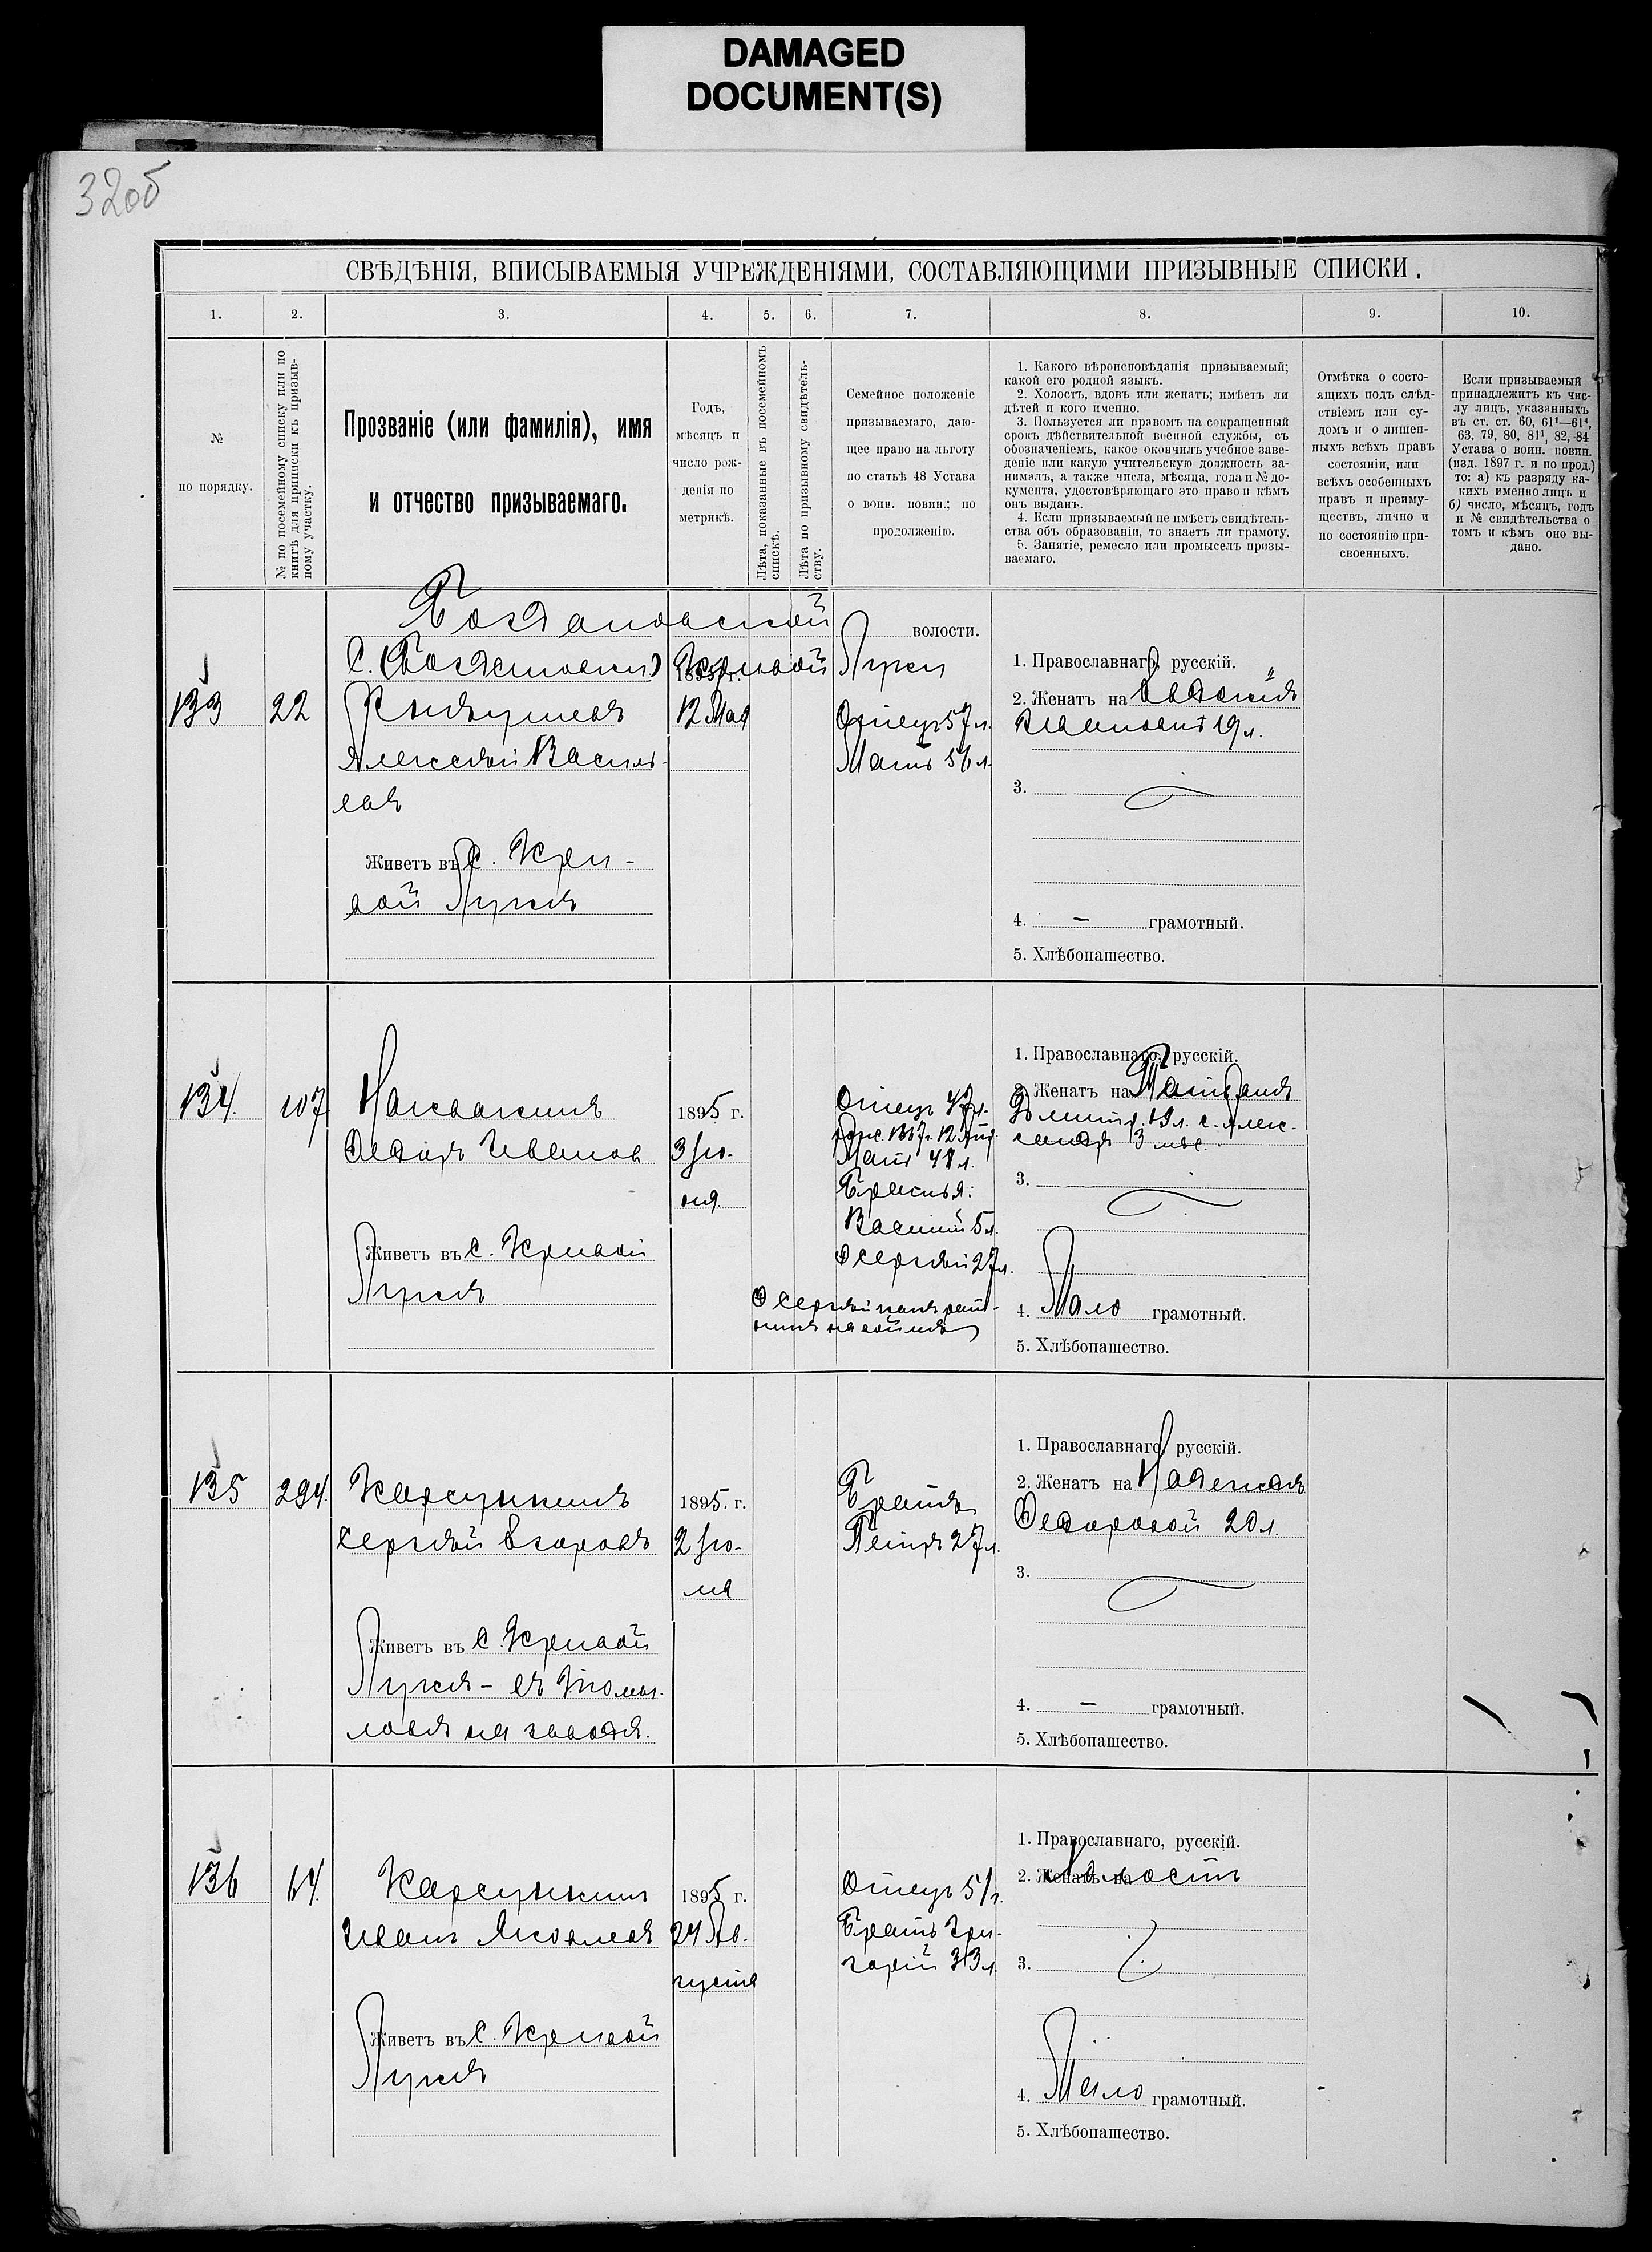 DAMAGED
DOCUMENT(S)
32об
СВѢДѢНІЯ, ВПИСЫВАЕМЫЯ УЧРЕЖДЕНІЯМИ, СОСТАВЛЯЮЩИМИ ПРИЗЫВНЫЕ СПИСКИ.
1. 2. 3. 4. 5. 6. 7. 8. 9. 10.
№
по порядку.
№ по посемейному списку или по
книгѣ для приписки къ призыв-
ному участку.
Прозваніе (или фамилія), имя
и отчество призываемаго.
Годъ,
мѣсяцъ и
число рож-
денія по
метрикѣ.
Лѣта, показанные въ посемейномъ
спискѣ.
Лѣта по призывному свидѣтель-
ству.
Семейное положеніе
призываемаго, даю-
щее право на льготу
по статьѣ 48 Устава
о воин. повин.; по
продолженію.
1. Какого вѣроисповѣданія призываемый;
какой его родной языкъ.
2. Холостъ, вдовъ или женатъ; имѣетъ ли
дѣтей и кого именно.
3. Пользуется ли правомъ на сокращенный
срокъ дѣйствительной военной службы, съ
обозначеніемъ, какое окончилъ учебное заве-
деніе или какую учительскую должность за-
нималъ, а также числа, мѣсяца, года и № до-
кумента, удостовѣряющаго это право и кѣмъ
онъ выданъ.
4. Если призываемый не имѣетъ свидѣтель-
ства объ образованіи, то знаетъ ли грамоту.
5. Занятіе, ремесло или промыселъ призы-
ваемаго.
Отмѣтка о состо-
ящихъ подъ слѣд-
ствіемъ или су-
домъ и о лишен-
ныхъ всѣхъ правъ
состоянія, или
всѣхъ особенныхъ
правъ и преиму-
ществъ, лично и
по состоянію при-
своенныхъ.
Если призываемый
принадлежитъ къ чис-
лу лицъ, указанныхъ
въ ст. ст. 60, 61¹—61⁴,
63, 79, 80, 81¹, 82, 84
Устава о воин. повин.
(изд. 1897 г. и по прод.)
то: а) къ разряду ка-
кихъ именно лицъ и
б) число, мѣсяцъ, годъ
и № свидѣтельства о
томъ и кѣмъ оно вы-
дано.
Богдановской волости.
С. Кривой Луки
133
22
Алексѣй Василь-
евъ
Живетъ въ С. Кри-
вой Лукѣ
1895 г.
12 Мая
Отецъ 57 л.
Мать 56 л.
1. Православнаго, русскій.
2. Женатъ на
Ивановнѣ 19 л.
3.
4. — грамотный.
5. Хлѣбопашество.
134.
107
Федоръ Ивановъ
Живетъ въ С. Кривой
Лукѣ
1895 г.
3 Ію-
ня
Отецъ 47 л.
Мать 48 л.
Братья:
Василій 5 л.
Сергѣй 27 л.
1. Православнаго, русскій.
2. Женатъ на
19 л. с. Алекс-
3 мѣс.
3.
4. Мало грамотный.
5. Хлѣбопашество.
135
294.
Карсункинъ
Сергѣй Егоровъ
Живетъ въ С. Кривой
Лукѣ – въ Томы-
ловѣ на заводѣ.
1895. г.
2 Ію-
ля
Братъ
Петръ 27 л.
1. Православнаго, русскій.
2. Женатъ на Надеждѣ
Федоровой 20 л.
3.
4. — грамотный.
5. Хлѣбопашество.
136
64.
Карсункинъ
Иванъ Яковлевъ
Живетъ въ С. Кривой
Лукѣ
1895 г.
24 Ав-
густа
Отецъ 51 г.
Братъ Гри-
горій 33 л.
1. Православнаго, русскій.
2. Женатъ на Холостъ
3.
4. Мало грамотный.
5. Хлѣбопашество.